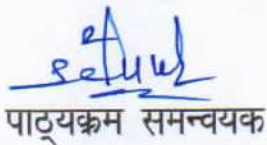 पाठ्यक्रम समन्वयक